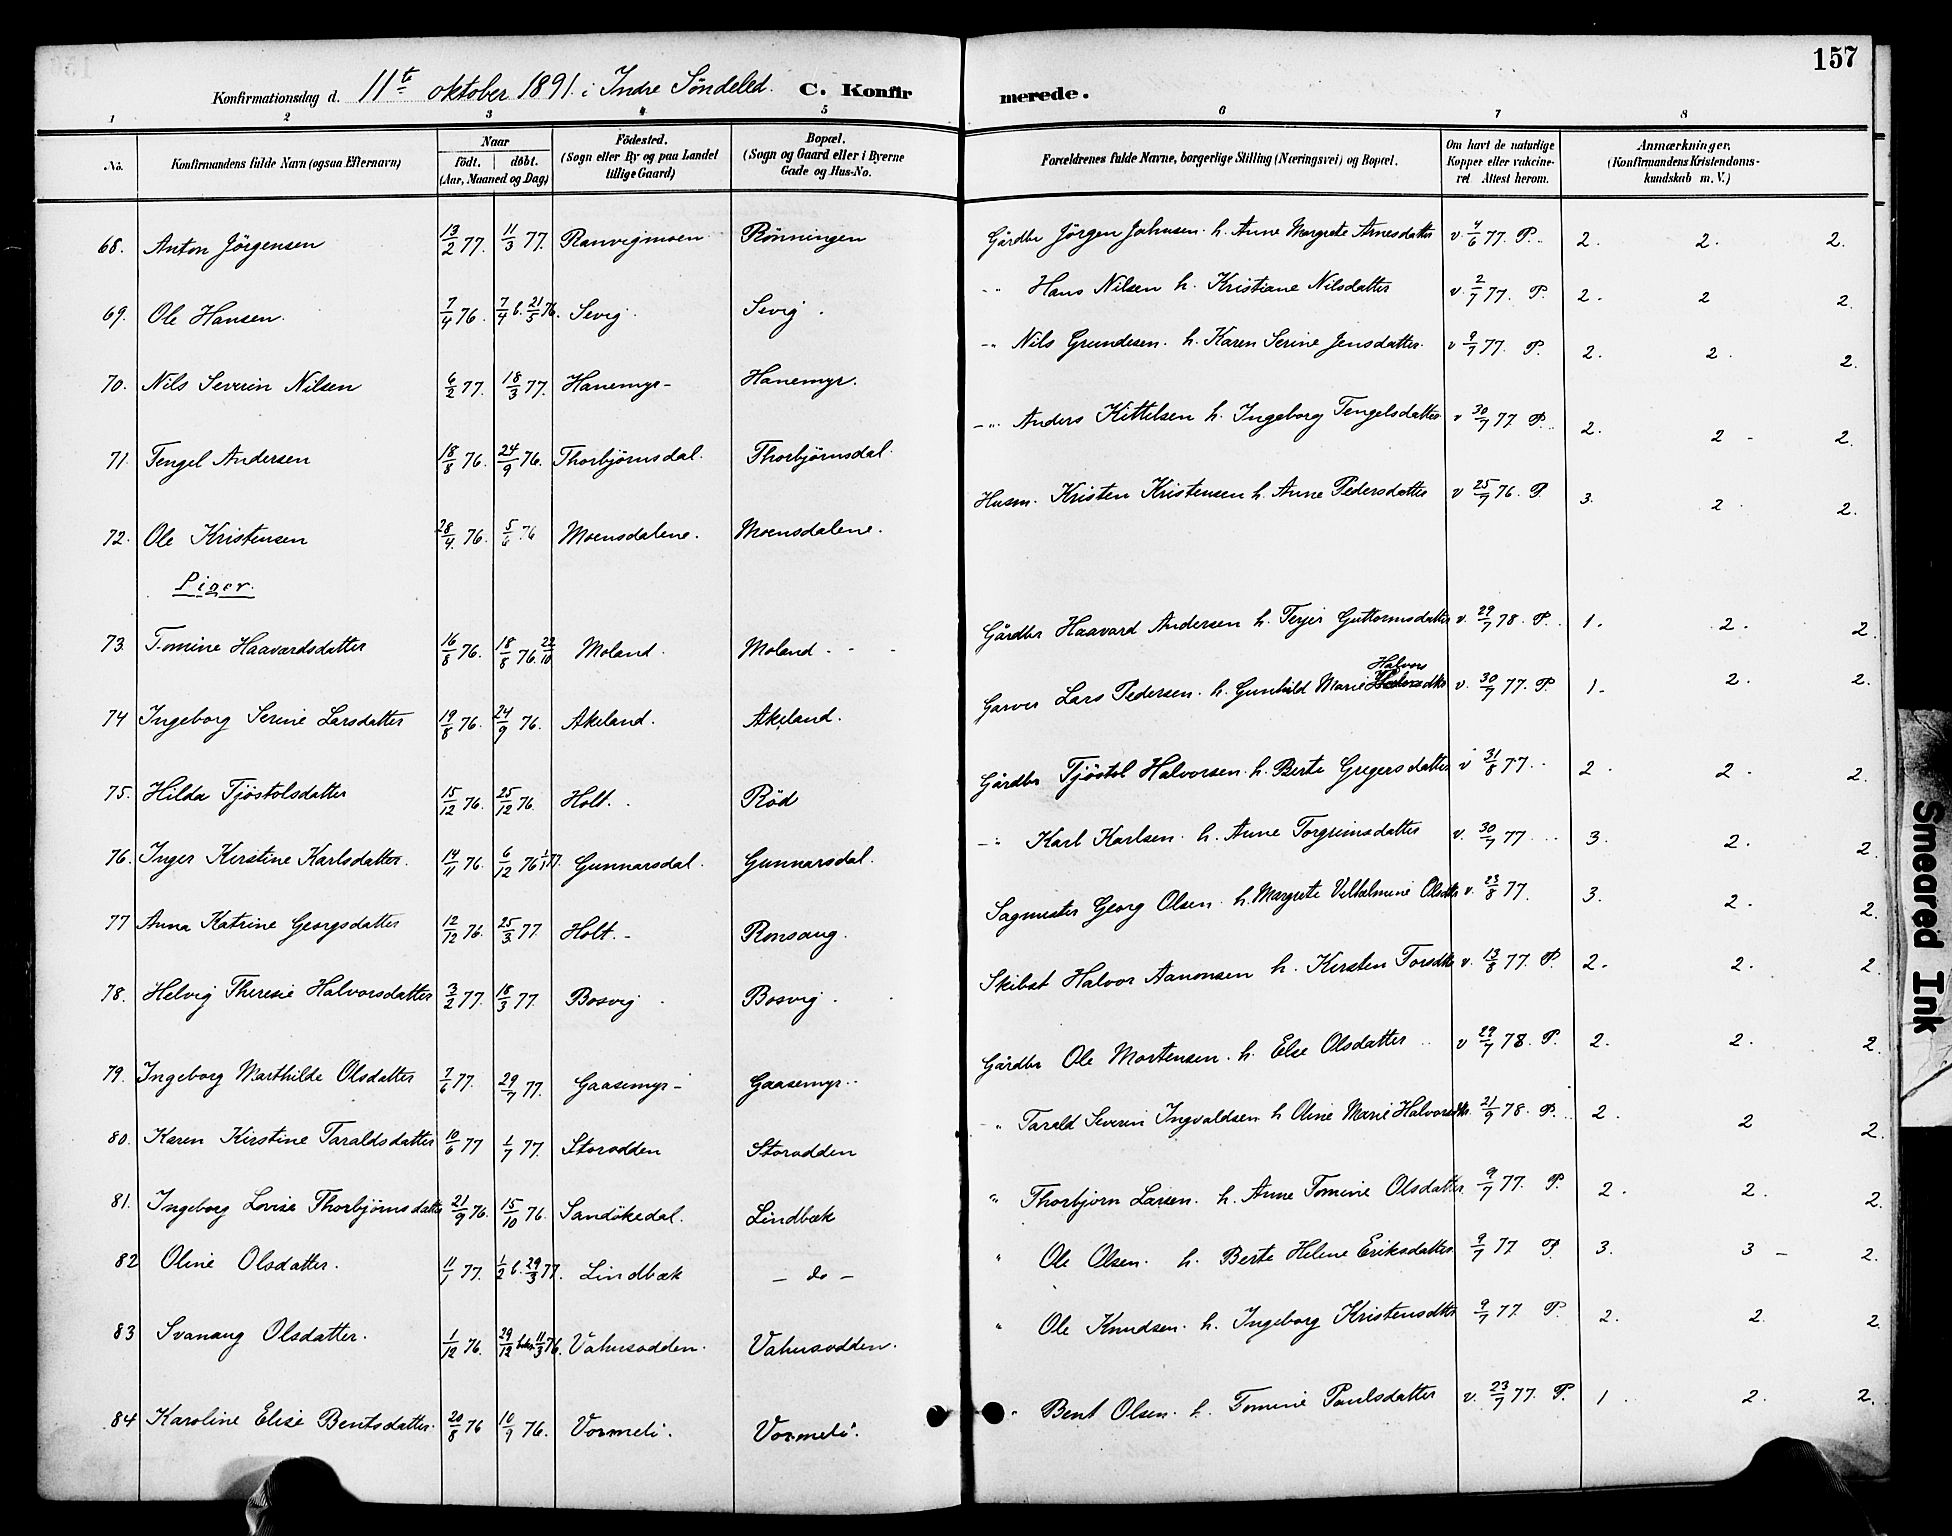 157
Konfirmationsdag d. 11te oktober 1891. i Indre Söndeled. C. Konfirmerede.
1 2 3 4 5 6 7 8
No. Konfirmandens fulde Navn (ogsaa Efternavn) Naar födt. döbt. (Aar, Maaned og Dag) Födested. (Sogn eller By og paa Landet tillige Gaard) Bopæl. (Sogn og Gaard eller i Byerne Gade og Hus-No. Forældrenes fulde Navne, borgerlige Stilling (Næringsvei) og Bopæl. Om havt de naturlige Kopper eller vakcineret. Attest herom. Anmærkninger. (Konfirmandens Kristendomskundskab m. V.)
68. Anton Jörgensen 13/2 77. 11/3 77. Ranvigmoen Rönningen Gårdbr Jörgen Johnsen h. Anne Margrete Arnesdatter v. 4/6 77. P. 2. 2. 2.
69. Ole Hansen. 7/4 76. 7/4 b. 21/5 76. Sevig. Sevig. -"- Hans Nilsen h. Kristiane Nilsdatter v. 2/7 77. P. 2. 2 2.
70. Nils Severin Nilsen 6/2 77. 18/3 77. Hanemyr- Hanemyr. -"- Nils Grundesen. h. Karen Serine Jensdatter. v 9/7 77. P. 2. 2. 2.
71. Tengel Andersen 18/8 76. 24/9 76. Thorbjörnsdal. Thorbjörnsdal. -"- Anders Kittelsen h. Ingeborg Tengelsdatter v 30/7 77 P. 2. 2 - 2.
72. Ole Kristensen 28/4. 76. 5/6. 76 Moensdalene. Moensdalene. Husm. Kristen Kristensen h. Anne Pedersdatter v 25/7 76. P. 3. 2. 2.
Piger.
73. Tomine Haavardsdatter 16/8 76. 18/8 76. 22/10 Moland. Moland. Gårdbr Haavard Andersen h. Terjer Guttormsdatter v. 29/7 78. P. 1. 2. 2.
74 Ingeborg Serine Larsdatter 19/8 76. 24/9 76. Akeland. Akeland. Garver Lars Pedersen. h. Gunhild Marie Halvorsdtr v. 30/7 77. P. 1. 2. 2.
75. Hilda Tjöstolsdatter 15/12 76. 25/12 76. Holt. Röd Gårdbr Tjöstol Halvorsen. h. Berte Gregersdatter v 31/8 77. 2. 2. 2.
76. Inger Kirstine Karlsdatter. 14/11 76. 6/12 76 1/1 77. Gunnarsdal. Gunnarsdal. -"- Karl Karlsen. h. Anne Torgrimsdatter v. 30/7 77 3. 2. 2.
77 Anna Katrine Georgsdatter 12/12 76. 25/3 77 Holt. - Ronsaug. Sagmester Georg Olsen. h. Margrete Vilhelmine Olsdtr v. 23/8 77. 3. 2. 2.
78. Helvig Theresie Halvorsdatter 3/2 77. 18/3 77. Bosvig Bosvig. Skibst Halvor Aanonsen h. Kirsten Torsdtr v. 13/8 77. P. 2. 2. 2.
79. Ingeborg Marthilde Olsdatter 7/6 77. 29/7 77. Gaasemyr- Gaasemyr. Gårdbr Ole Mortensen. h. Else Olsdatter v 29/7 78. P. 2. 2. 2.
80. Karen Kirstine Taraldsdatter 10/6 77 1/7 77. Storodden Storodden -"- Tarald Severin Ingvaldsen h Oline Marie Halvorsdtr. 21/9 78. P. 2. 2 2.
81. Ingeborg Lovise Thorbjörnsdatter 21/9 76. 15/10 76. Sandökedal. Lindbæk " Thorbjörn Larsen. h. Anne Tomine Olsdatter 9/7 77. P. 2. 2. 2.
82 Oline Olsdatter. 11/1 77. 1/2 b. 29/3 77. Lindbæk - do - " Ole Olsen. h. Berte Helene Eriksdatter 9/7 77 P. 3. 3 - 2.
83 Svanaug Olsdatter. 1/12 76. 29/12 11/3 76. Vahusodden. Vahusodden. " Ole Knudsen. h. Ingeborg Kristensdtr 9/7 77. P. 2. 2. 2.
84 Karoline Elise Bentsdatter. 20/8 76 10/9 76. Vormeli. Vormeli. " Bent Olsen. h. Tomine Paulsdatter v. 23/7 77. P. 1 2. 2.
Smeared Ink